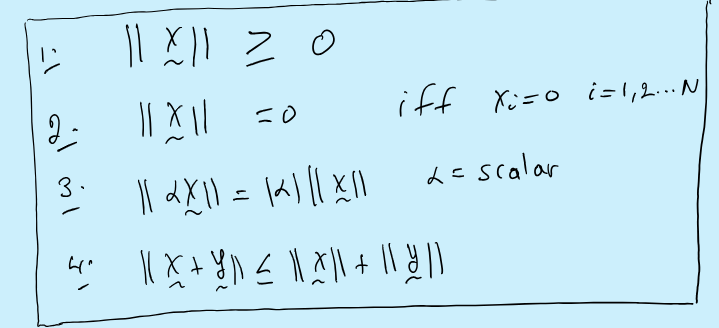 1. ||x̰|| ≥ 0
2. ||x̰|| = 0 iff xᵢ=0 i=1,2...N
3. ||αx̰|| = |α| ||x̰|| α = scalar
4. ||x̰ + y̰|| ≤ ||x̰|| + ||y̰||